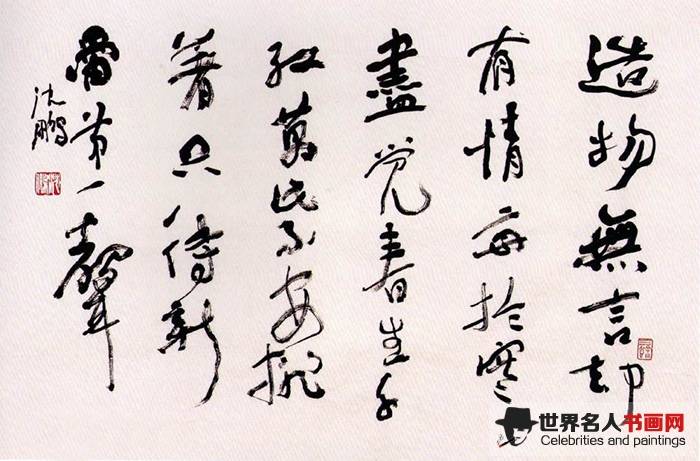 造物無言却
有情每於寒
盡觉春生千
红萬紫安排
著只待新
雷第一聲
沈鵬
世界名人书画网
Celebrities and paintings